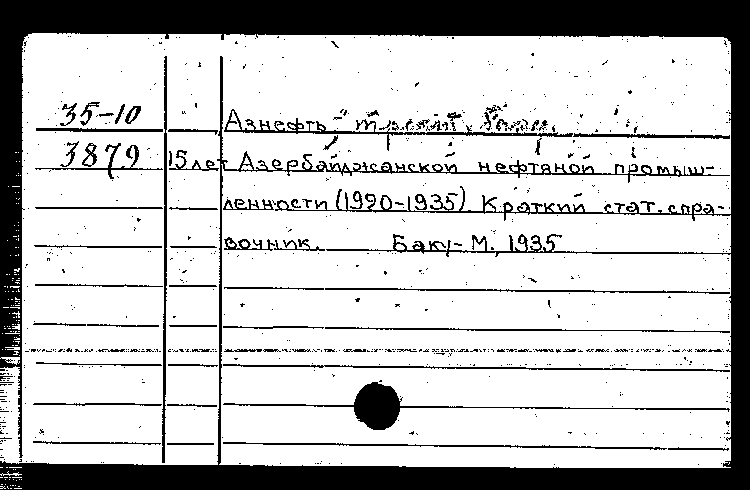 35-10 Азнефть", трест. Баку.
3879 15 лет Азербайджанской нефтяной промыш-
ленности (1920-1935). Краткий стат. спра-
вочник. Баку-М., 1935